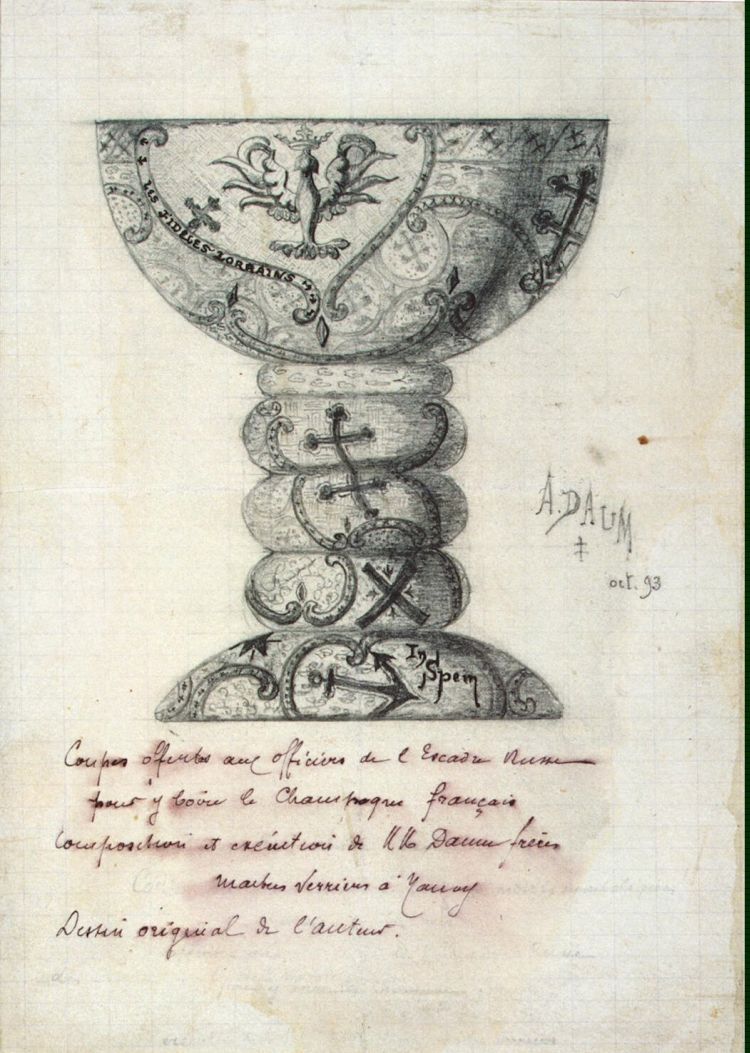 LES FIDELES LORRAINS
A. DAUM
oct. 93
In
Spem
Coupes offertes aux officiers de l'Escadre Russe
pour y boire le Champagne français
Composition et exécution de MM Daum frères
maitres verriers à Nancy
Dessin original de l'auteur.